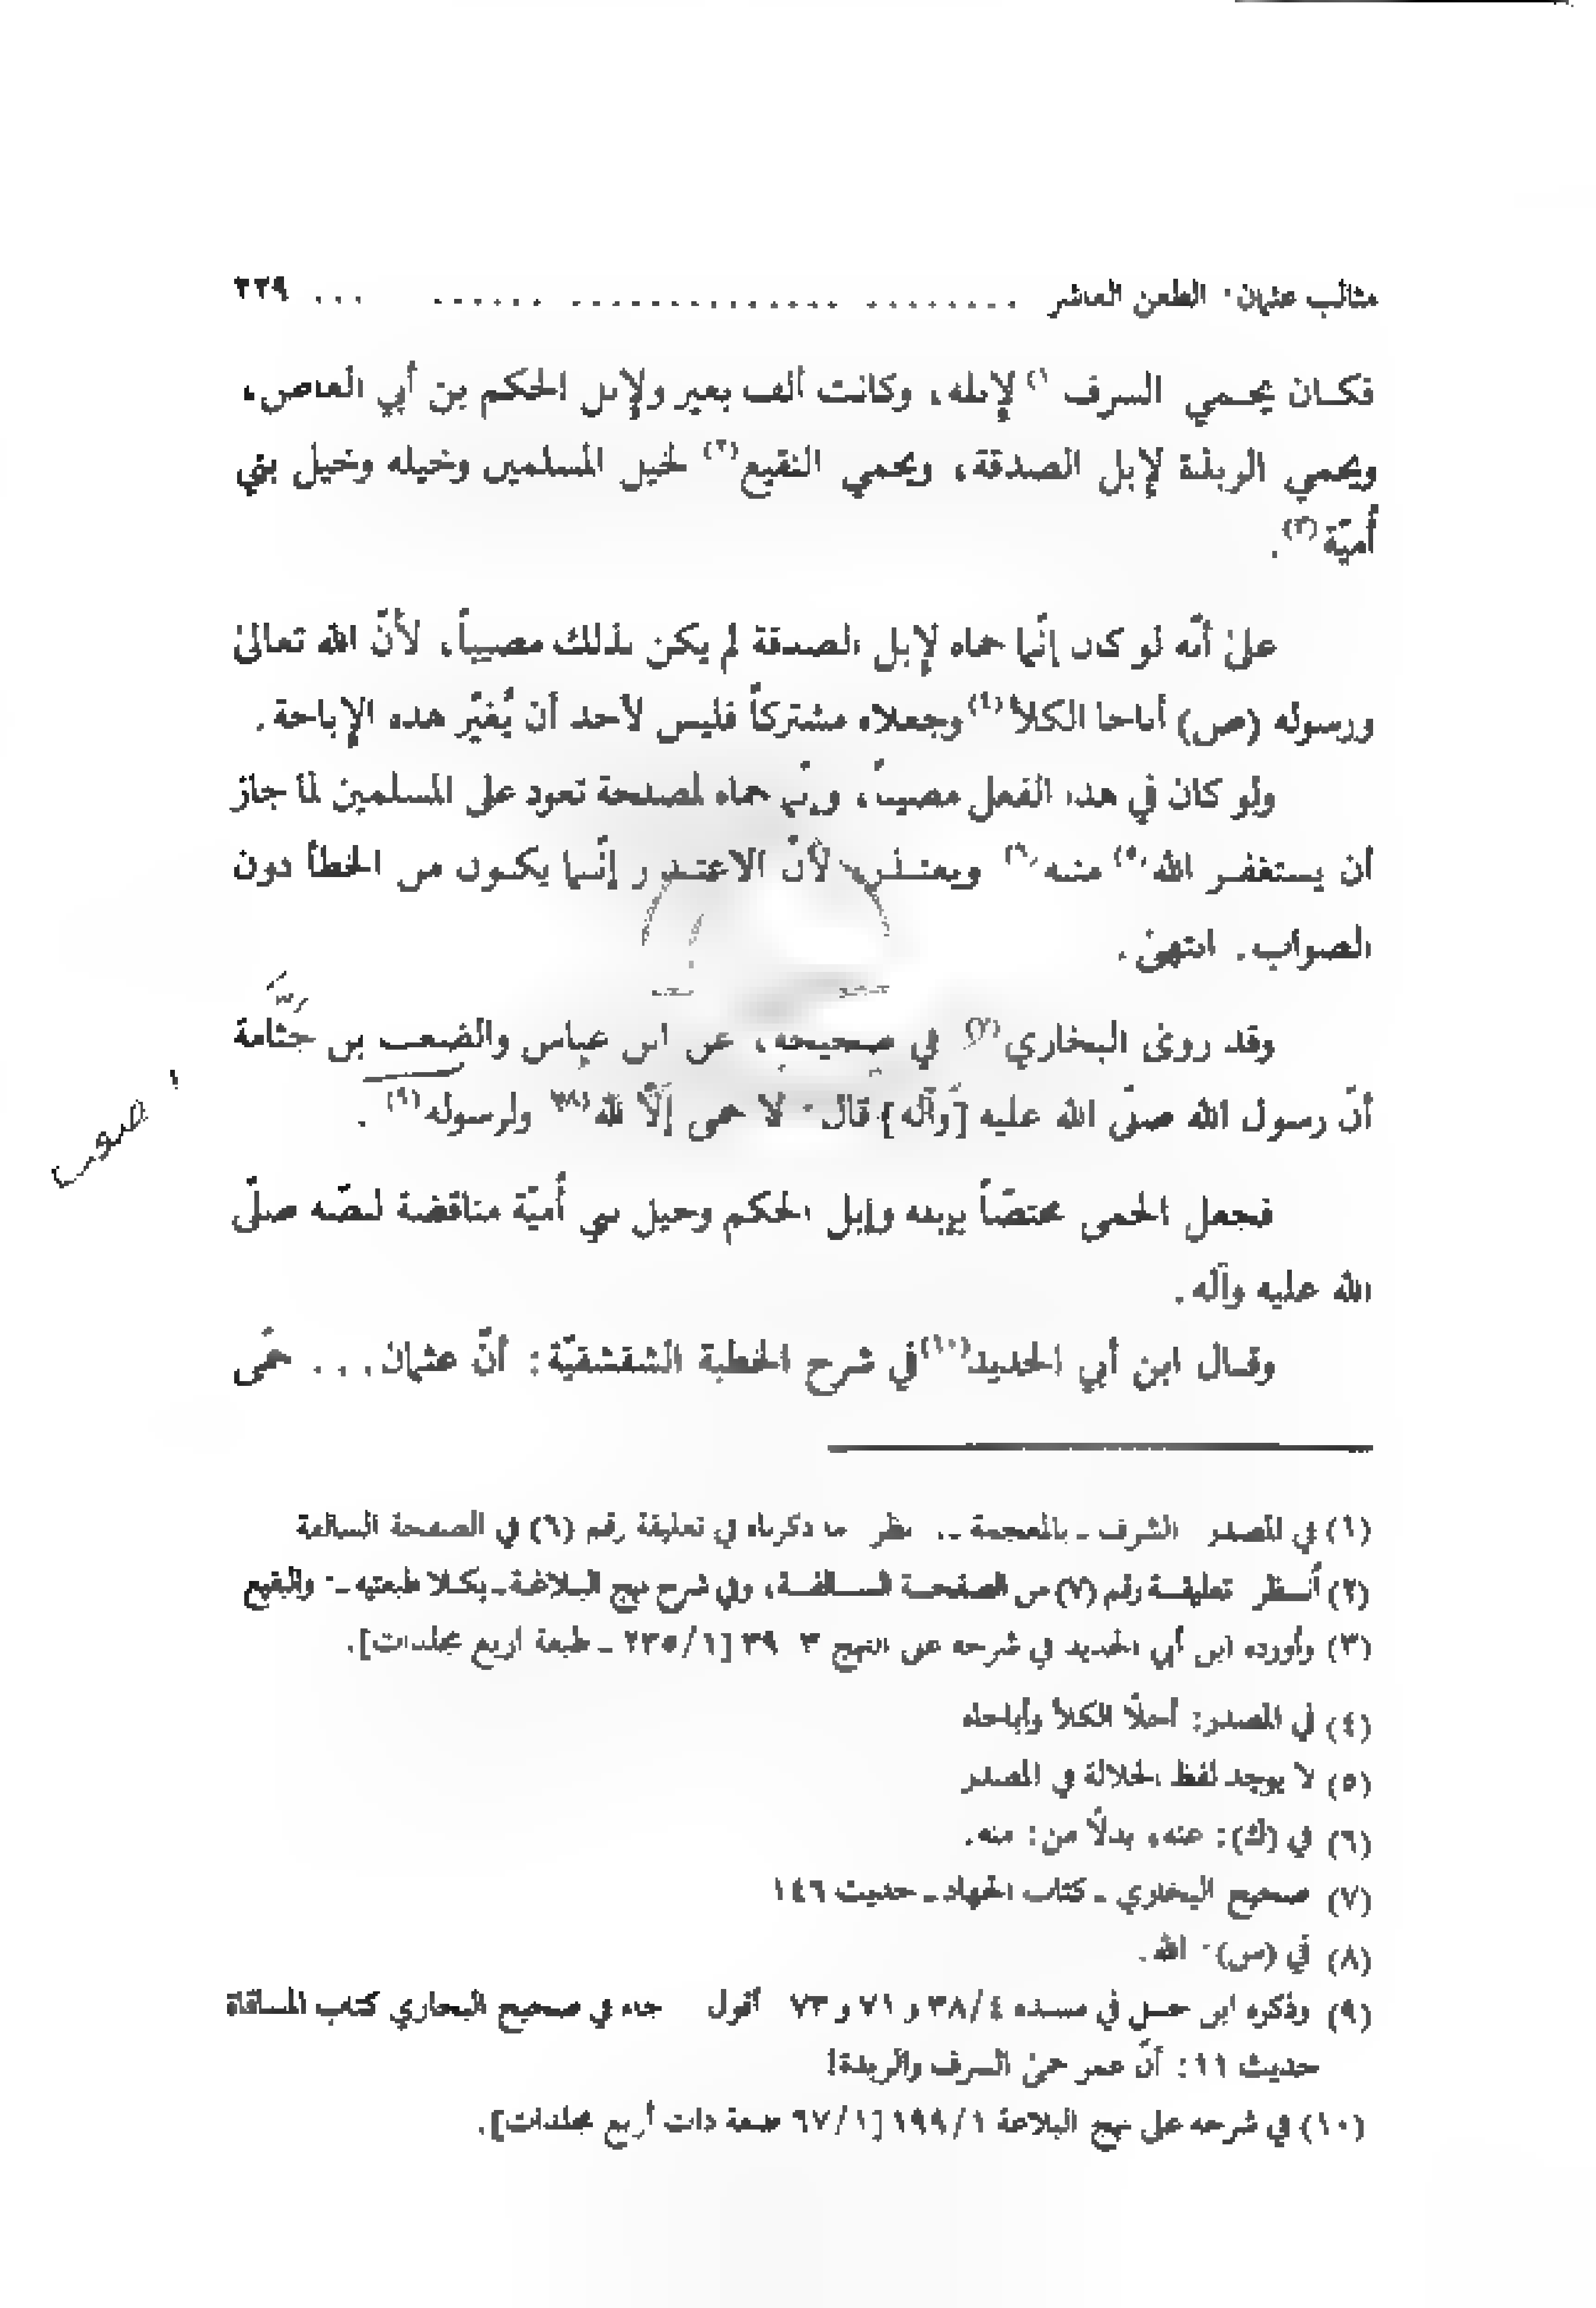 مثالب عثمان: الطعن العاشر ........ .............. ...... ... ٢٢٩
فكـان يحـمي السرف (١) لإبله، وكانت ألف بعير ولإبل الحكم بن أبي العاص،
ويحمي الربذة لإبل الصدقة، ويحمي النقيع (٢) لخيل المسلمين وخيله وخيل بني
أُميّة (٣).
علىٰ أنّه لو كان إنّما حماه لإبل الصدقة لم يكن بذلك مصيباً، لأنّ الله تعالىٰ
ورسوله (ص) أباحا الكلأ (٤) وجعلاه مشتركاً فليس لأحد أن يُغيّر هذه الإباحة.
ولو كان في هذا الفعل مصيباً، وإنّما حماه لمصلحة تعود على المسلمين لما جاز
أن يستغفـر الله (٥) منـه (٦) ويعتـذر، لأنّ الاعتـذار إنّـما يكـون من الخطأ دون
الصواب. انتهىٰ.
وقد روىٰ البخاري (٧) في صحيحه، عن ابن عباس والصعب بن جَثّامة
أنّ رسول الله صلّى الله عليه [وآله] قال: لا حمى إلّا لله (٨) ولرسوله (٩).
صعب
فجعل الحمى مختصّاً بإبله وإبل الحكم وخيل بني أُميّة مناقضة لنصّه صلّى
الله عليه وآله.
وقـال ابن أبي الحديد (١٠) في شرح الخطبة الشقشقيّة: أنّ عثمان... حمى
(١) في المصدر الشرف ـ بالمعجمة ـ. نظر ما ذكرناه في تعليقة رقم (٦) في الصفحة السالفة
(٢) أُنـظر تعليقـة رقم (٧) من الصفحـة السـالفـة، وفي شرح نهج البـلاغـة ـ بكـلا طبعتيه ـ: والبقيع
(٣) وأورده ابن أبي الحديد في شرحه على النهج ٣ ٣٩ [١/٢٣٥ ـ طبعة أربع مجلدات].
(٤) في المصدر: أحلّا الكلأ وأباحاه
(٥) لا يوجد لفظ الجلالة في المصدر
(٦) في (ك): عنه، بدلاً من: منه.
(٧) صحيح البخاري ـ كتاب الجهاد ـ حديث ١٤٦
(٨) في (س): الله.
(٩) وذكره ابن حنبل في مسنده ٤/٣٨ و ٧١ و ٧٣ أقول جاء في صحيح البخاري كتاب المساقاة
حديث ١١: أنّ عمر حمىٰ السرف والربذة!
(١٠) في شرحه على نهج البلاغة ١/١٩٩ [١/٦٧ طبعة ذات أربع مجلدات].